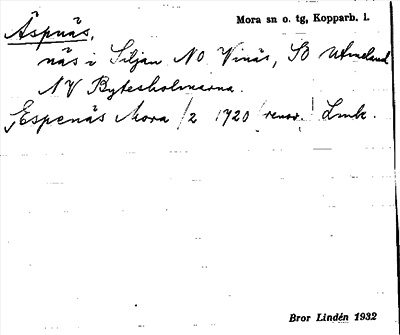 Äspnäs, Mora sn o. tg, Kopparb. l.
näs i Siljan NO Vinäs, SO Utmeland
NV Bytesholmarna.
Espenäs Mora /2 1720 (renov.) Lmk.
Bror Lindén 1932